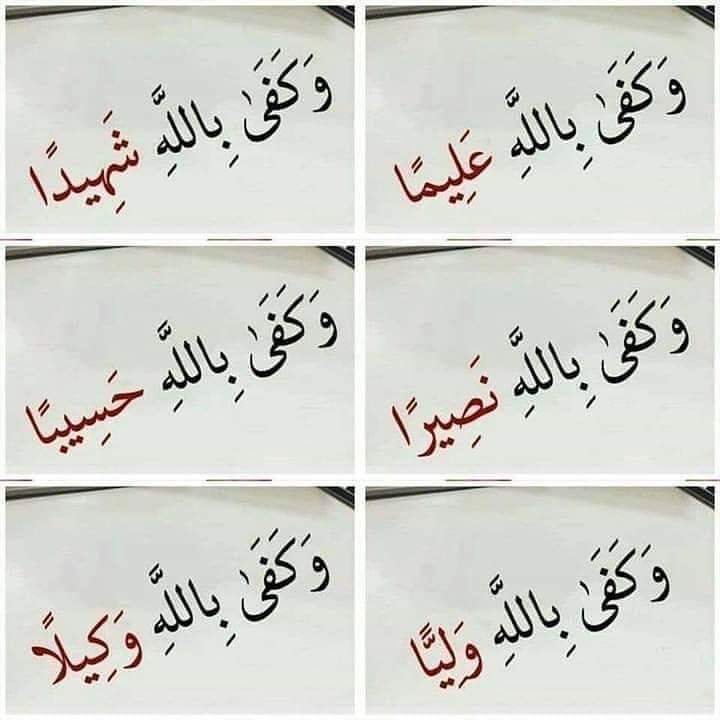 وَكَفَىٰ بِاللَّهِ عَلِيمًا
وَكَفَىٰ بِاللَّهِ شَهِيدًا
وَكَفَىٰ بِاللَّهِ نَصِيرًا
وَكَفَىٰ بِاللَّهِ حَسِيبًا
وَكَفَىٰ بِاللَّهِ وَلِيًّا
وَكَفَىٰ بِاللَّهِ وَكِيلًا